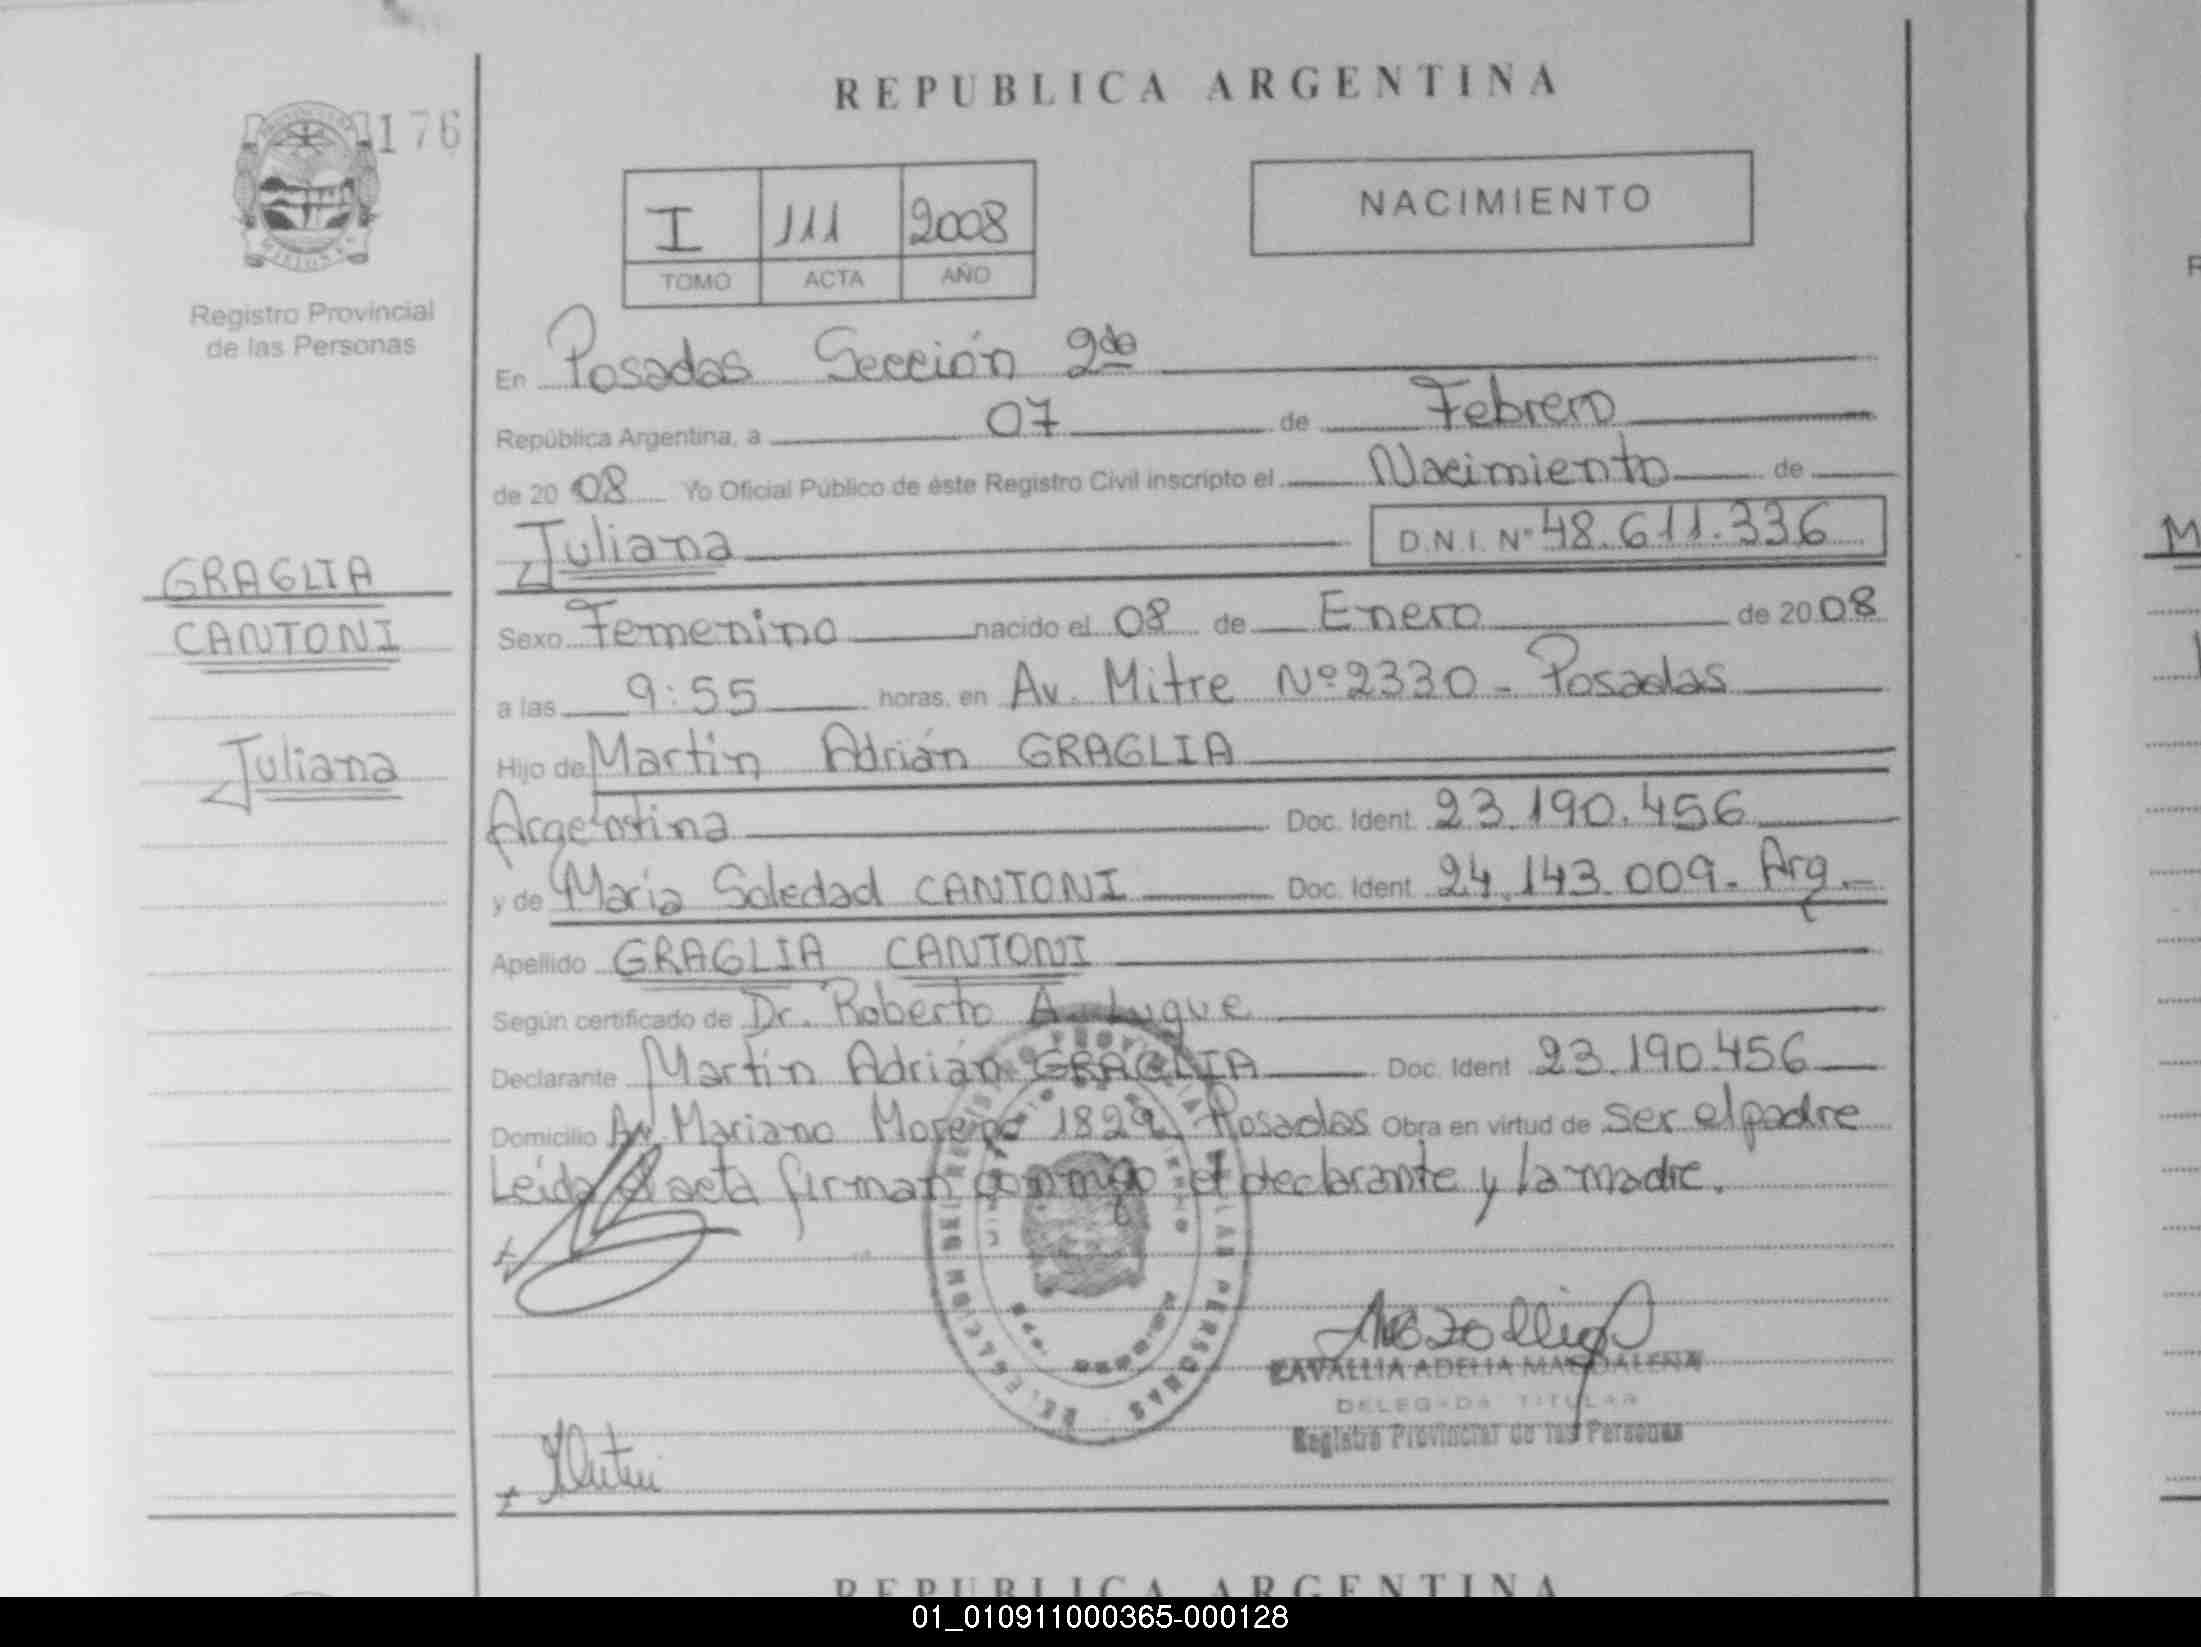 REPUBLICA ARGENTINA
176
NACIMIENTO
I 111 2008
TOMO ACTA AÑO
Registro Provincial
de las Personas
En Posadas Sección 2da
República Argentina, a 07 de Febrero
de 2008 Yo Oficial Público de éste Registro Civil inscripto el Nacimiento de
Juliana D.N.I. Nº 48.611.336
GRAGLIA
CANTONI
Juliana
Sexo Femenino nacido el 08 de Enero de 2008
a las 9:55 horas, en Av. Mitre Nº 2330 - Posadas
Hijo de Martin Adrián GRAGLIA
Argentina Doc. Ident. 23.190.456
y de Maria Soledad CANTONI Doc. Ident. 24.143.009 - Arg.-
Apellido GRAGLIA CANTONI
Según certificado de Dr. Roberto A. Luque
Declarante Martín Adrián GRAGLIA Doc. Ident 23.190.456
Domicilio Av. Mariano Moreno 1829 Posadas Obra en virtud de ser el padre
Leída el acta firman conmigo el declarante y la madre.
REGISTRO PROVINCIAL DE LAS PERSONAS
ZAVALLIA ADELIA MAGDALENA
DELEGADA TITULAR
Registro Provincial de las Personas
REPUBLICA ARGENTINA
01_010911000365-000128